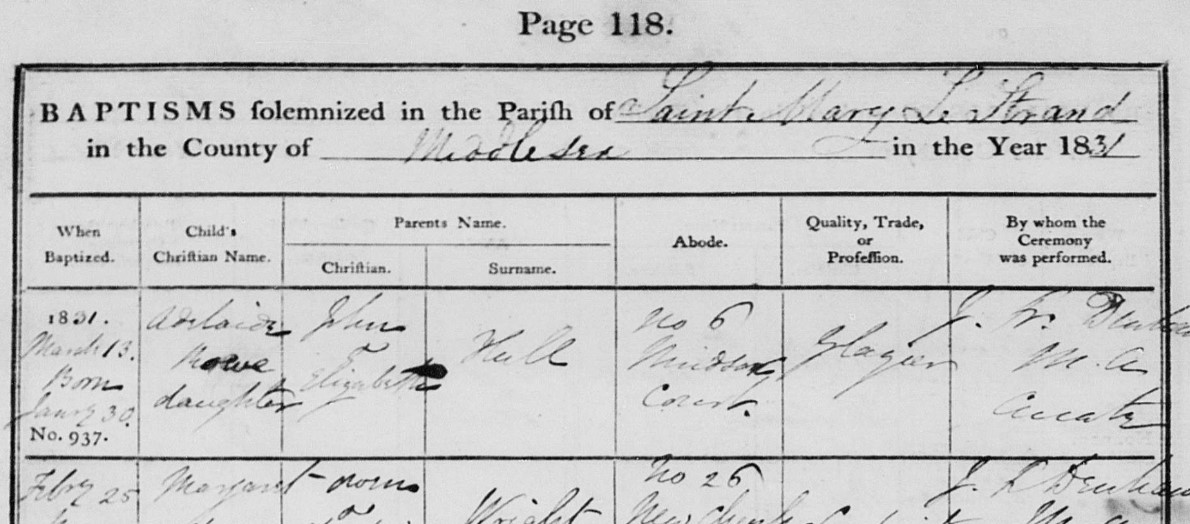 Page 118.
BAPTISMS ſolemnized in the Pariſh of Saint Mary Le Strand
in the County of Middlesex in the Year 1831
When
Baptized.
Child's
Chriſtian Name.
Parents Name.
Chriſtian.
Surname.
Abode.
Quality, Trade,
or
Profeſſion.
By whom the
Ceremony
was performed.
1831.
March 13.
Born
Janry 30.
No. 937.
Adelaide
Rowe
daughter
John
&
Elizabeth
Hull
No 6
Windsor
Court.
Glazier
J. F. Denham
M. A
Curate
Febry 25
Margaret
Wright
No 26
New
J. F. Denham
M